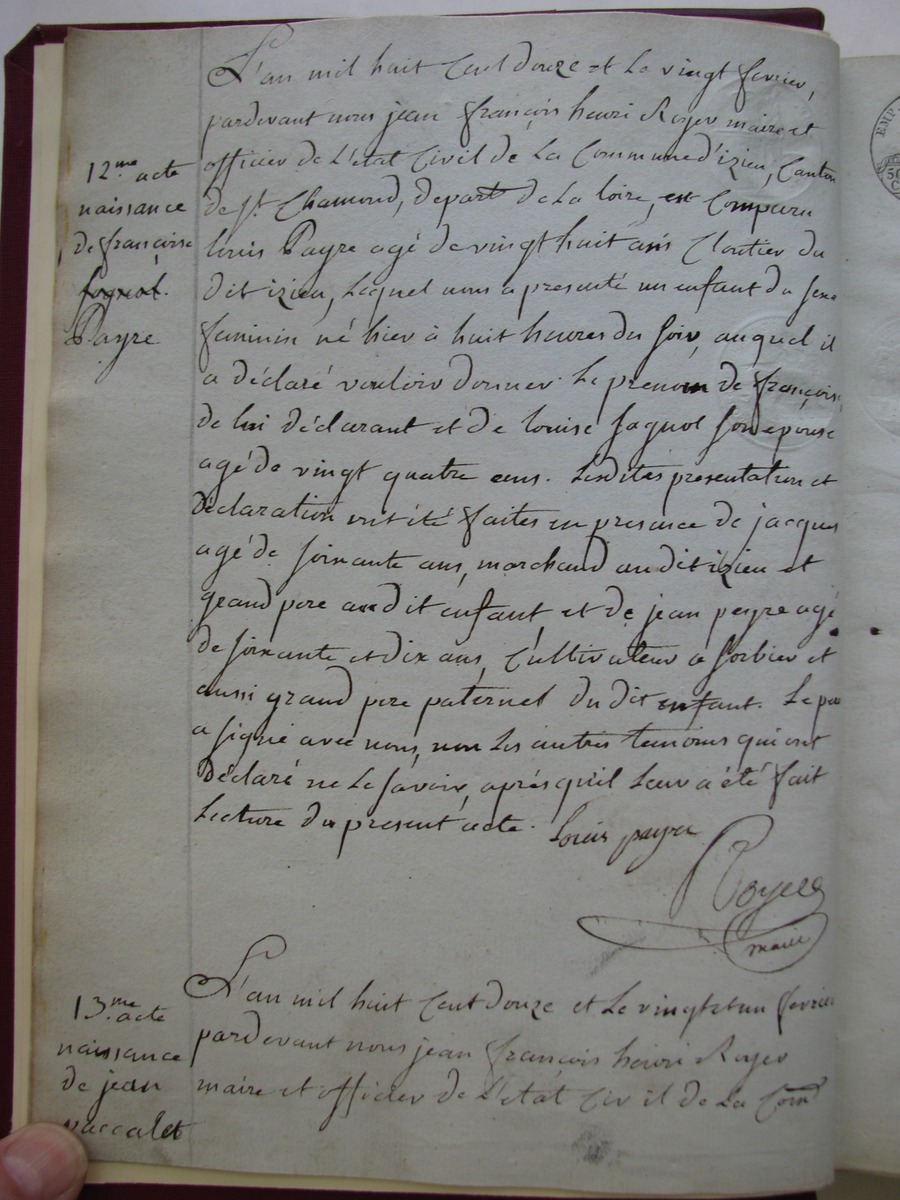 12me. acte
naissance
de françoise
fagnol.
Payre
L'an mil huit Cent douze et Le vingt fevrier,
pardevant nous jean françois henri Royer maire et
officier de L'etat Civil de La Commune d'izieu, Canton
de St. Chamond, depart de La loire, est Comparu
louis Payre agé de vingt huit ans Cloutier du
dit izieu, Lequel nous a presenté un enfant du sexe
feminin né hier à huit heures du soir, auquel il
a déclaré vouloir donner Le prenom de françoise,
de lui déclarant et de louise fagnol son epouse
agé de vingt quatre ans. Lesdites presentation et
déclaration ont été faites en presence de jacques
agé de soixante ans, marchand au dit izieu et
grand pere audit enfant et de jean peyre agé
de soixante et dix ans, Cultivateur a sorbier et
aussi grand pere paternel du dit enfant. Le pere
a signé avec nous, non Les autres temoins qui ont
déclaré ne Le savoir, après qu'il Leur a été fait
Lecture du present acte.
louis payre
Royer
maire
13me. acte
naissance
de jean
vaccalet
L'an mil huit Cent douze et Le vingt et un fevrier
pardevant nous jean françois henri Royer
maire et officier de L'etat Civil de La Com
EMP
50
C